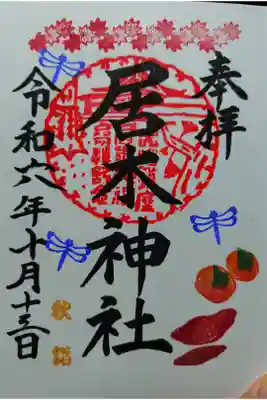 奉拝
居木神社
令和六年十月十三日